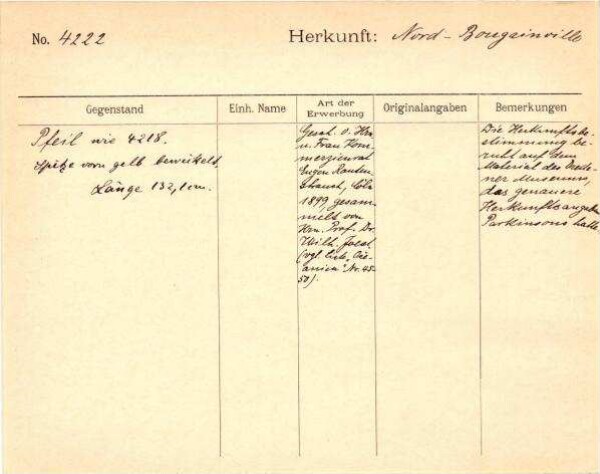 No. 4222
Herkunft: Nord-Bougainville
Gegenstand
Einh. Name
Art der Erwerbung
Originalangaben
Bemerkungen
Pfeil wie 4218.
Spitze vorn gelb bewickelt.
Länge 132,1 cm.
Gesch. v. Hrn
u. Frau Kom-
merzienrat
Eugen Rauten-
strauch, Cöln
1899, gesam-
melt von
Hrn. Prof. Dr.
Wilh. Joest
(vgl. "Oze-
anien" Nr. 48-
50).
Die Herkunftsbe-
stimmung be-
ruht auf dem
Material des Dresde-
ner Museums,
das genauere
Herkunftsangaben
Parkinsons hatte.